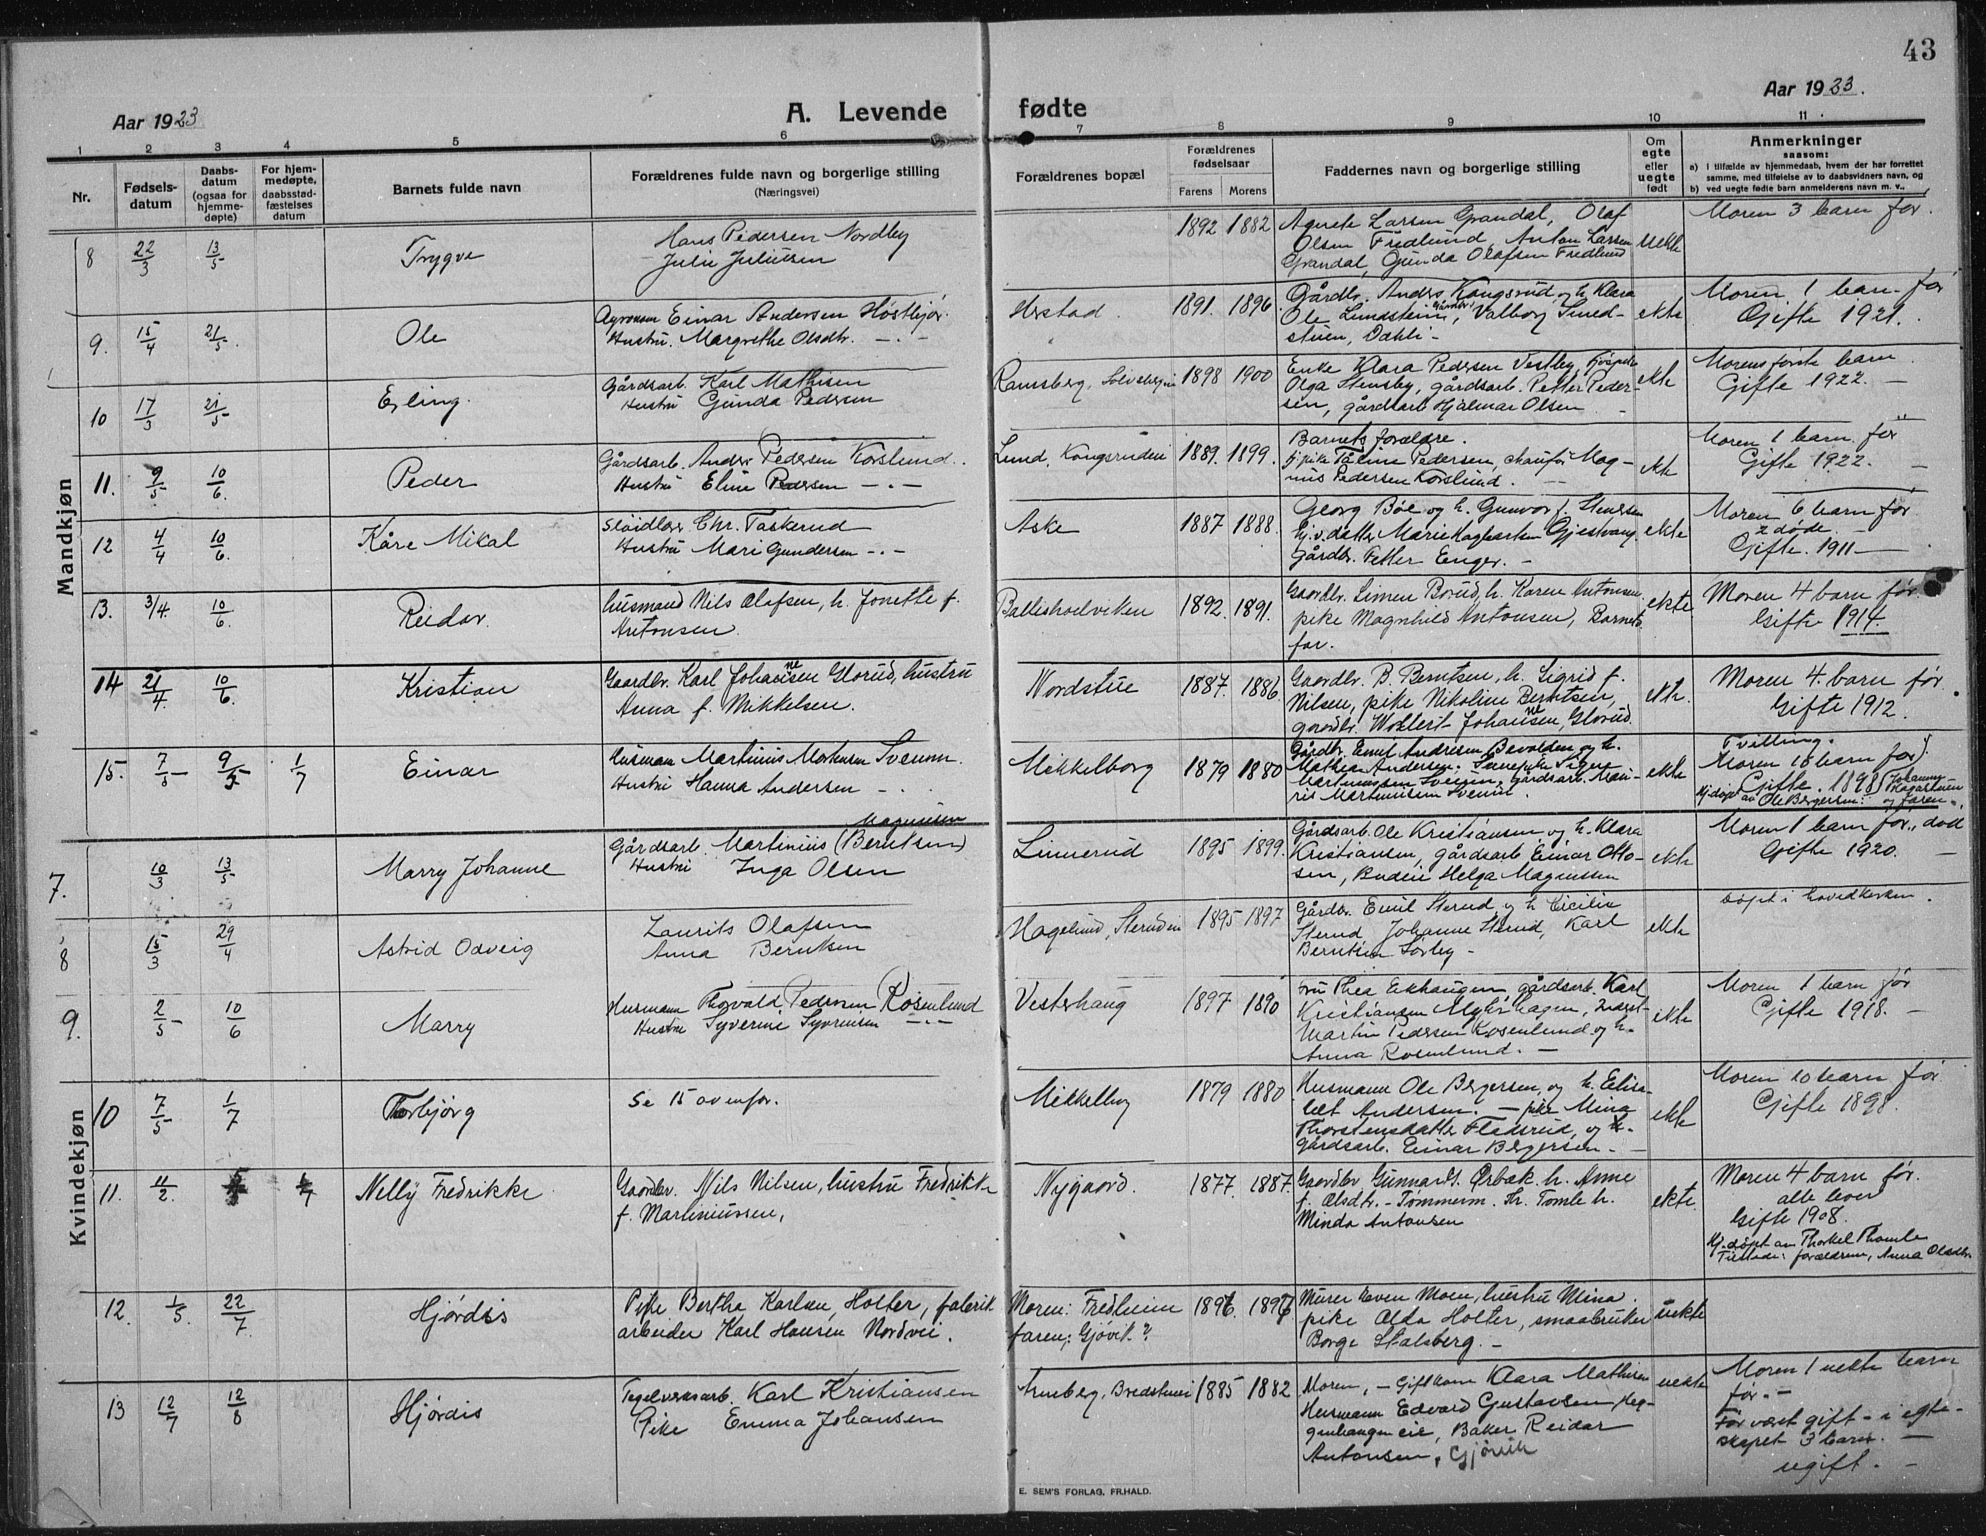 43
Aar 1923
A. Levende fødte
Aar 1923.
1 2 3 4 5 6 7 8 9 10 11
Nr.
Fødselsdatum
Daabsdatum (ogsaa for hjemmedøpte)
For hjemmedøpte, daabsstadfæstelses datum
Barnets fulde navn
Forældrenes fulde navn og borgerlige stilling
(Næringsvei)
Forældrenes bopæl
Forældrenes fødselsaar
Farens Morens
Faddernes navn og borgerlige stilling
Om egte eller uegte født
Anmerkninger
saasom:
a) i tilfælde av hjemmedaab, hvem der har forrettet samme, med tilføielse av to daabsvidners navn, og
b) ved uegte fødte barn anmelderens navn m. v.,
Mandkjøn
8 22/3 13/5 Trygve
Hans Pedersen Nordby
Julie Juliussen
1892 1882
Agnete Larsen Grandal, Olaf
Olsen Fredlund, Anton Larsen
Grandal, Gunda Olafsen Fredlund
uekte
Moren 3 barn før.
9. 15/4 21/5. Ole
Agronom Einar Andersen Høstbjør.
Hustru. Margrethe Olsdtr. — . —
Herstad. 1891. 1896
Gårdbr. Anders Kongsrud og h. Klara
Ole Lundstein, Valborg Smed-
stuen, Dahli -
ekte
Moren 1 barn før
Gifte 1921.
10 17/3 21/5 Erling.
Gårdsarb. Karl Mathisen
Hustru Gunda Pedersen
Ramsberg, 1898 1900
Enke Klara Pedersen Vestby,
Olga Stensby, gårdsarb. Petter Peder-
sen, gårdsarb Hjalmar Olsen -
ekte
Morens første barn.
Gifte 1922. —
11. 9/5 10/6. Peder
Gårdsarb. Anders Pedersen Korslund.
Hustru Eline Pedersen — . —
Lund, Kongsrudeie 1889. 1899.
Barnets forældre.
pike Pedersen, chaufør Mag-
nus Pedersen Korslund. —
ekte
Moren 1 barn før
Gifte 1922. —
12 4/4 10/6. Kåre Mikal
Sløidlær. Chr. Taskerud
Hustru Mari Gundersen - . -
Aske 1887 1888.
Georg Bøe og h. Gunvor f. Stensen
Gj.v. datter Marie Gjestvang
Gårdbr. Petter Enger. -
ekte
Moren 6 barn før
2 døde. —
Gifte. 1911 —
13. 3/4. 10/6 Reidar.
husmand Nils Olafsen, h. Jonette f.
Antonsen.
Ballishoelviken 1892. 1891.
Gaardbr. Simen Borud, h. Karen Antonsen
pike Magnhild Antonsen, Barnets
far.
ekte
Moren 4 barn før.
Gifte 1914.
14 21/4 10/6. Kristian
Gaardbr. Karl Johannesen Glorud, hustru
Anna f. Mikkelsen.
Nordstue 1887. 1886
Gaardbr. B. Berntsen, h. Sigrid f.
Nilsen, pike Nikoline Berntsen,
gaardbr. Wollert Johannesen, Glorud.
ekte.
Moren 4 barn før
Gifte 1912.
15. 7/5 9/5 1/7 Einar
Husmann Martinius Mortensen Svenn.
Hustru Hanna Andersen - .
Mikkelborg 1879 1880
Gårdbr. Emil Andresen Bevolden og h.
Mathea Andersen. Sigrid
Martinussen Svenn, gårdsarb. Mau-
ris Martinussen Svenn.
ekte
Tvilling.
Moren 10 barn før
Gifte. 1898
Hj.døpt av Ole Bergersen: og faren.
Kvindekjøn
7. 10/3 13/5 Marry Johanne
Magnussen
Gårdsarb. Martinius (Berntsen)
Hustru Inga Olsen
Linnerud 1895 1899.
Gårdsarb. Ole Kristiansen og h. Klara
Kristiansen, gårdsarb Einar Otto-
sen, Budeie Helga Magnussen
ekte
Moren 1 barn før, død
Gifte 1920. —
8 15/3 29/4 Astrid Odveig
Laurits Olafsen
Anna Berntsen
Hagelund, Sterudeie 1895 1897
Gårdbr. Emil Sterud og h Cicilie
Sterud Johanne Sterud, Karl
Berntsen Sørby -
ekte
Døpt i hovedkirken.
9. 2/5 10/6 Marry
Husmann Thorvald Pedersen Rosenlund
Hustru Syverine Syversen — . —
Vesterhaug 1897 1890
Fru Thea Ekhaugen gårdsarb. Karl
Kristiansen Myhrhagen,
Martin Pedersen Rosenlund og h.
Anna Rosenlund. —
ekte
Moren 1 barn før
Gifte 1918. —
10 7/5 1/7 Thorbjørg
Se 15 ovenfor.
Mikkelborg 1879 1880
Husmann Ole Bergersen og h. Elisa-
bet Andersen. — pike Mina
Thorstensdatter Fladsrud, og
gårdsarb. Einar Bergersen. -
ekte
Moren 10 barn før
Gifte 1898.
11. 11/2. Nelly Fredrikke
Gaardbr. Nils Nilsen, hustru Fredrikke
f. Martiniussen,
Nygaard. 1877. 1887.
Gaardbr Gunnardt. Ørbæk h. Anne
f. Olsdtr. - Tømmerm. Kr. Tomle h.
Minda Antonsen
ekte.
Moren 4 barn før.
alle lever
Gifte 1908.
Hj.døpt av Thorkel Thomle
Tilstede: forældrene, Anna Olsdtr.
12. 1/5. 22/7. Hjørdis
Pike Bertha Karlsen, Holter, fabrik
arbeider Karl Hansen Nordvei.
Moren: Fredheim
faren: Gjøvik? 1896. 1897
Murer Even Moen, hustru Mina.
pike Alda Holter, smaabruker
Borge Stalsberg. -
uekte
13 12/7 12/8 Hjørdis
Teglverksarb. Karl Kristiansen
Pike Emma Johansen
Arneberg, Bredstueei 1885 1882
Moren, - Giftkone Klara Mathisen
Husmann Edvard Gustavsen
Baker Reidar
Antonsen, Gjøvik
uekte
Moren 1 uekte barn
før. —
Før været gift - i egte-
skapet 3 barn. —
ugift. —
E. SEM'S FORLAG, FR.HALD.